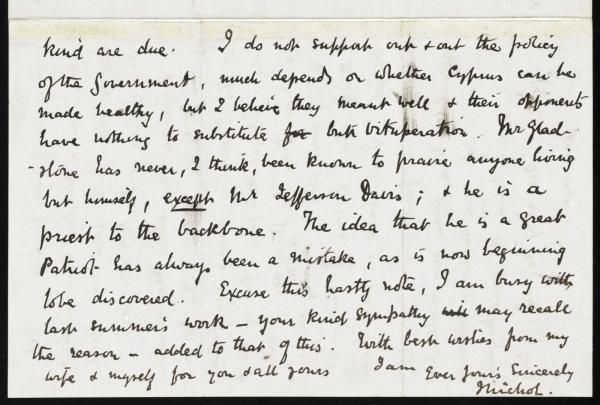 kind are due. I do not support out & out the policy
of the Government, much depends on whether Cyprus can be
made healthy, but I believe they meant well & their opponents
have nothing to substitute for but vituperation. Mr Glad-
-stone has never, I think, been known to praise anyone living
but himself, except Mr Jefferson Davis; & he is a
priest to the backbone. The idea that he is a great
Patriot has always been a mistake, as is now beginning
to be discovered. Excuse this hasty note, I am busy with
last summer's work – your kind sympathy will may recall
the reason – added to that of this. With best wishes from my
wife & myself for you & all yours I am Ever Yours Sincerely
J Nichol.